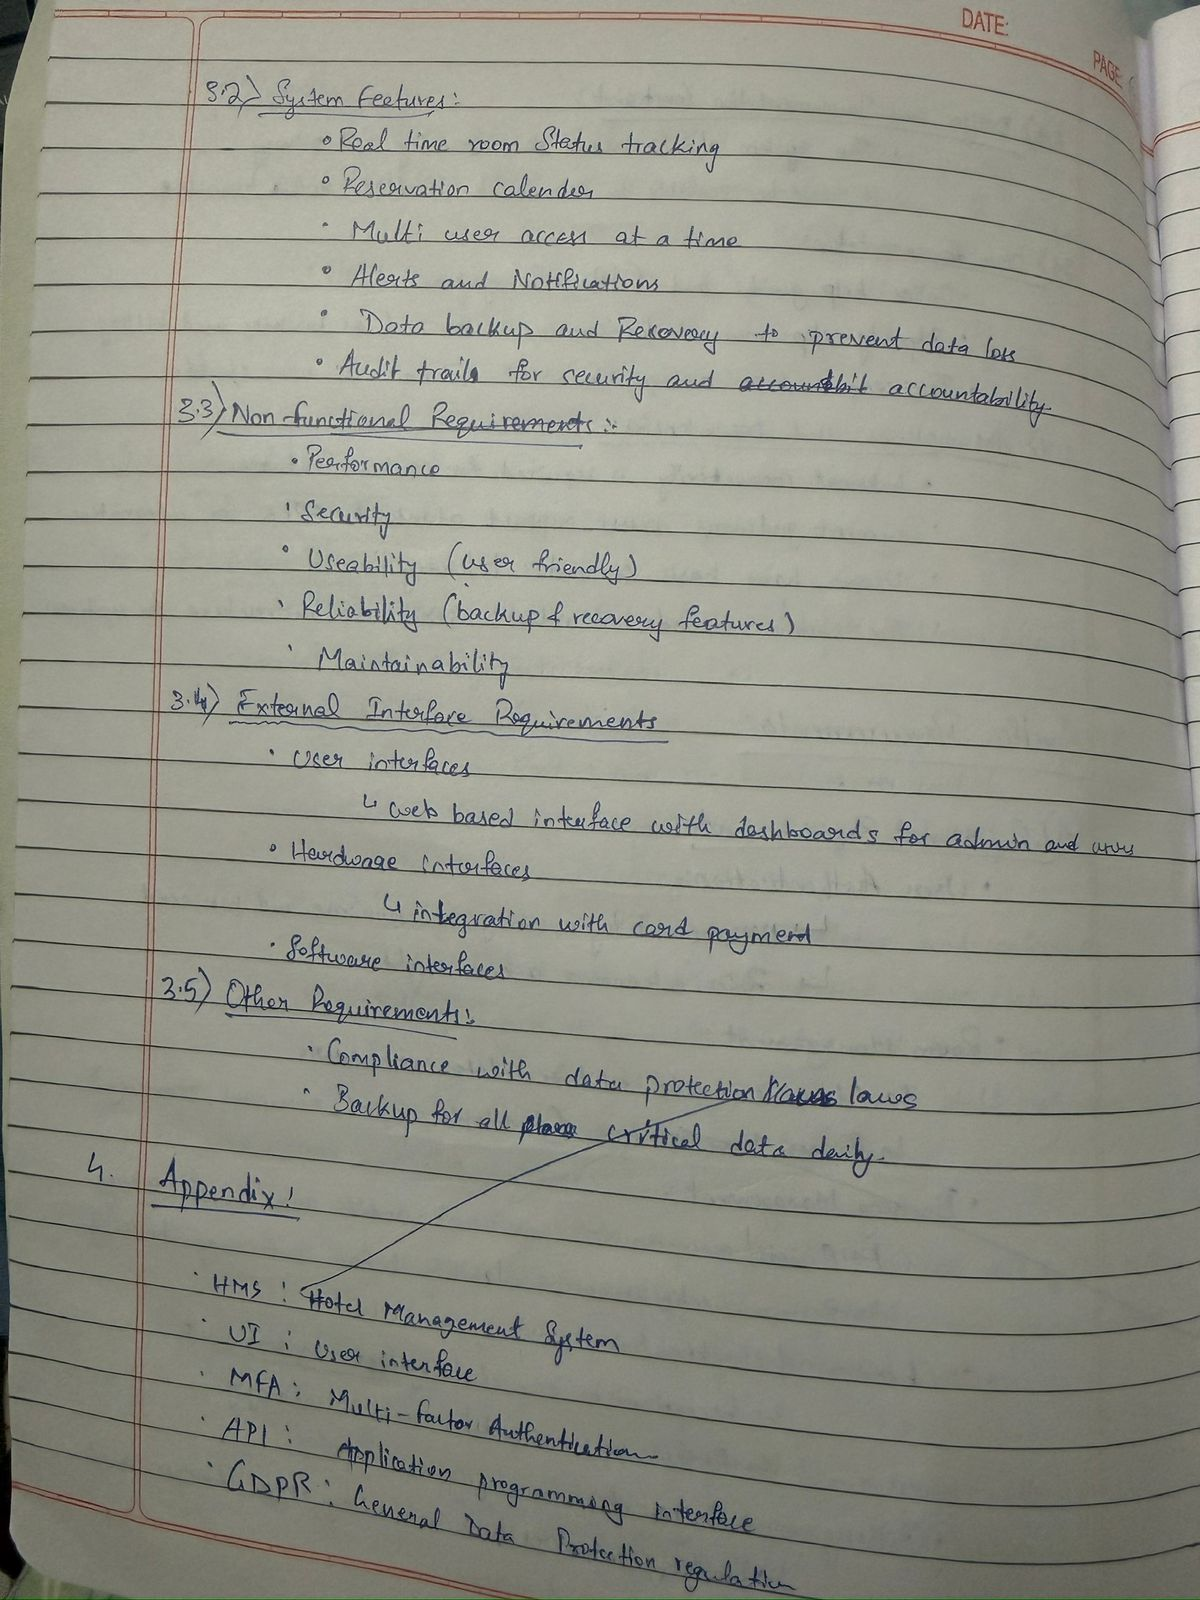 DATE:
PAGE:
3.2) System Features:
• Real time room Status tracking
• Reservation calender
• Multi user access at a time
• Alerts and Notifications
• Data backup and Recovery to prevent data loss
• Audit trails for security and accountbit accountability
3.3) Non-functional Requirements :-
• Performance
• Security
• Useability (user friendly)
• Reliability (backup & recovery features)
• Maintainability
3.4) External Interface Requirements
• User interfaces
↳ web based interface with dashboards for admin and users
• Hardware interfaces
↳ integration with card payment
• Software interfaces
3.5) Other Requirements:
• Compliance with data protection laws
• Backup for all critical data daily.
4. Appendix:
• HMS : Hotel Management System
• UI : User interface
• MFA : Multi-factor Authentication
• API : Application programming interface
• GDPR : General Data Protection regulation